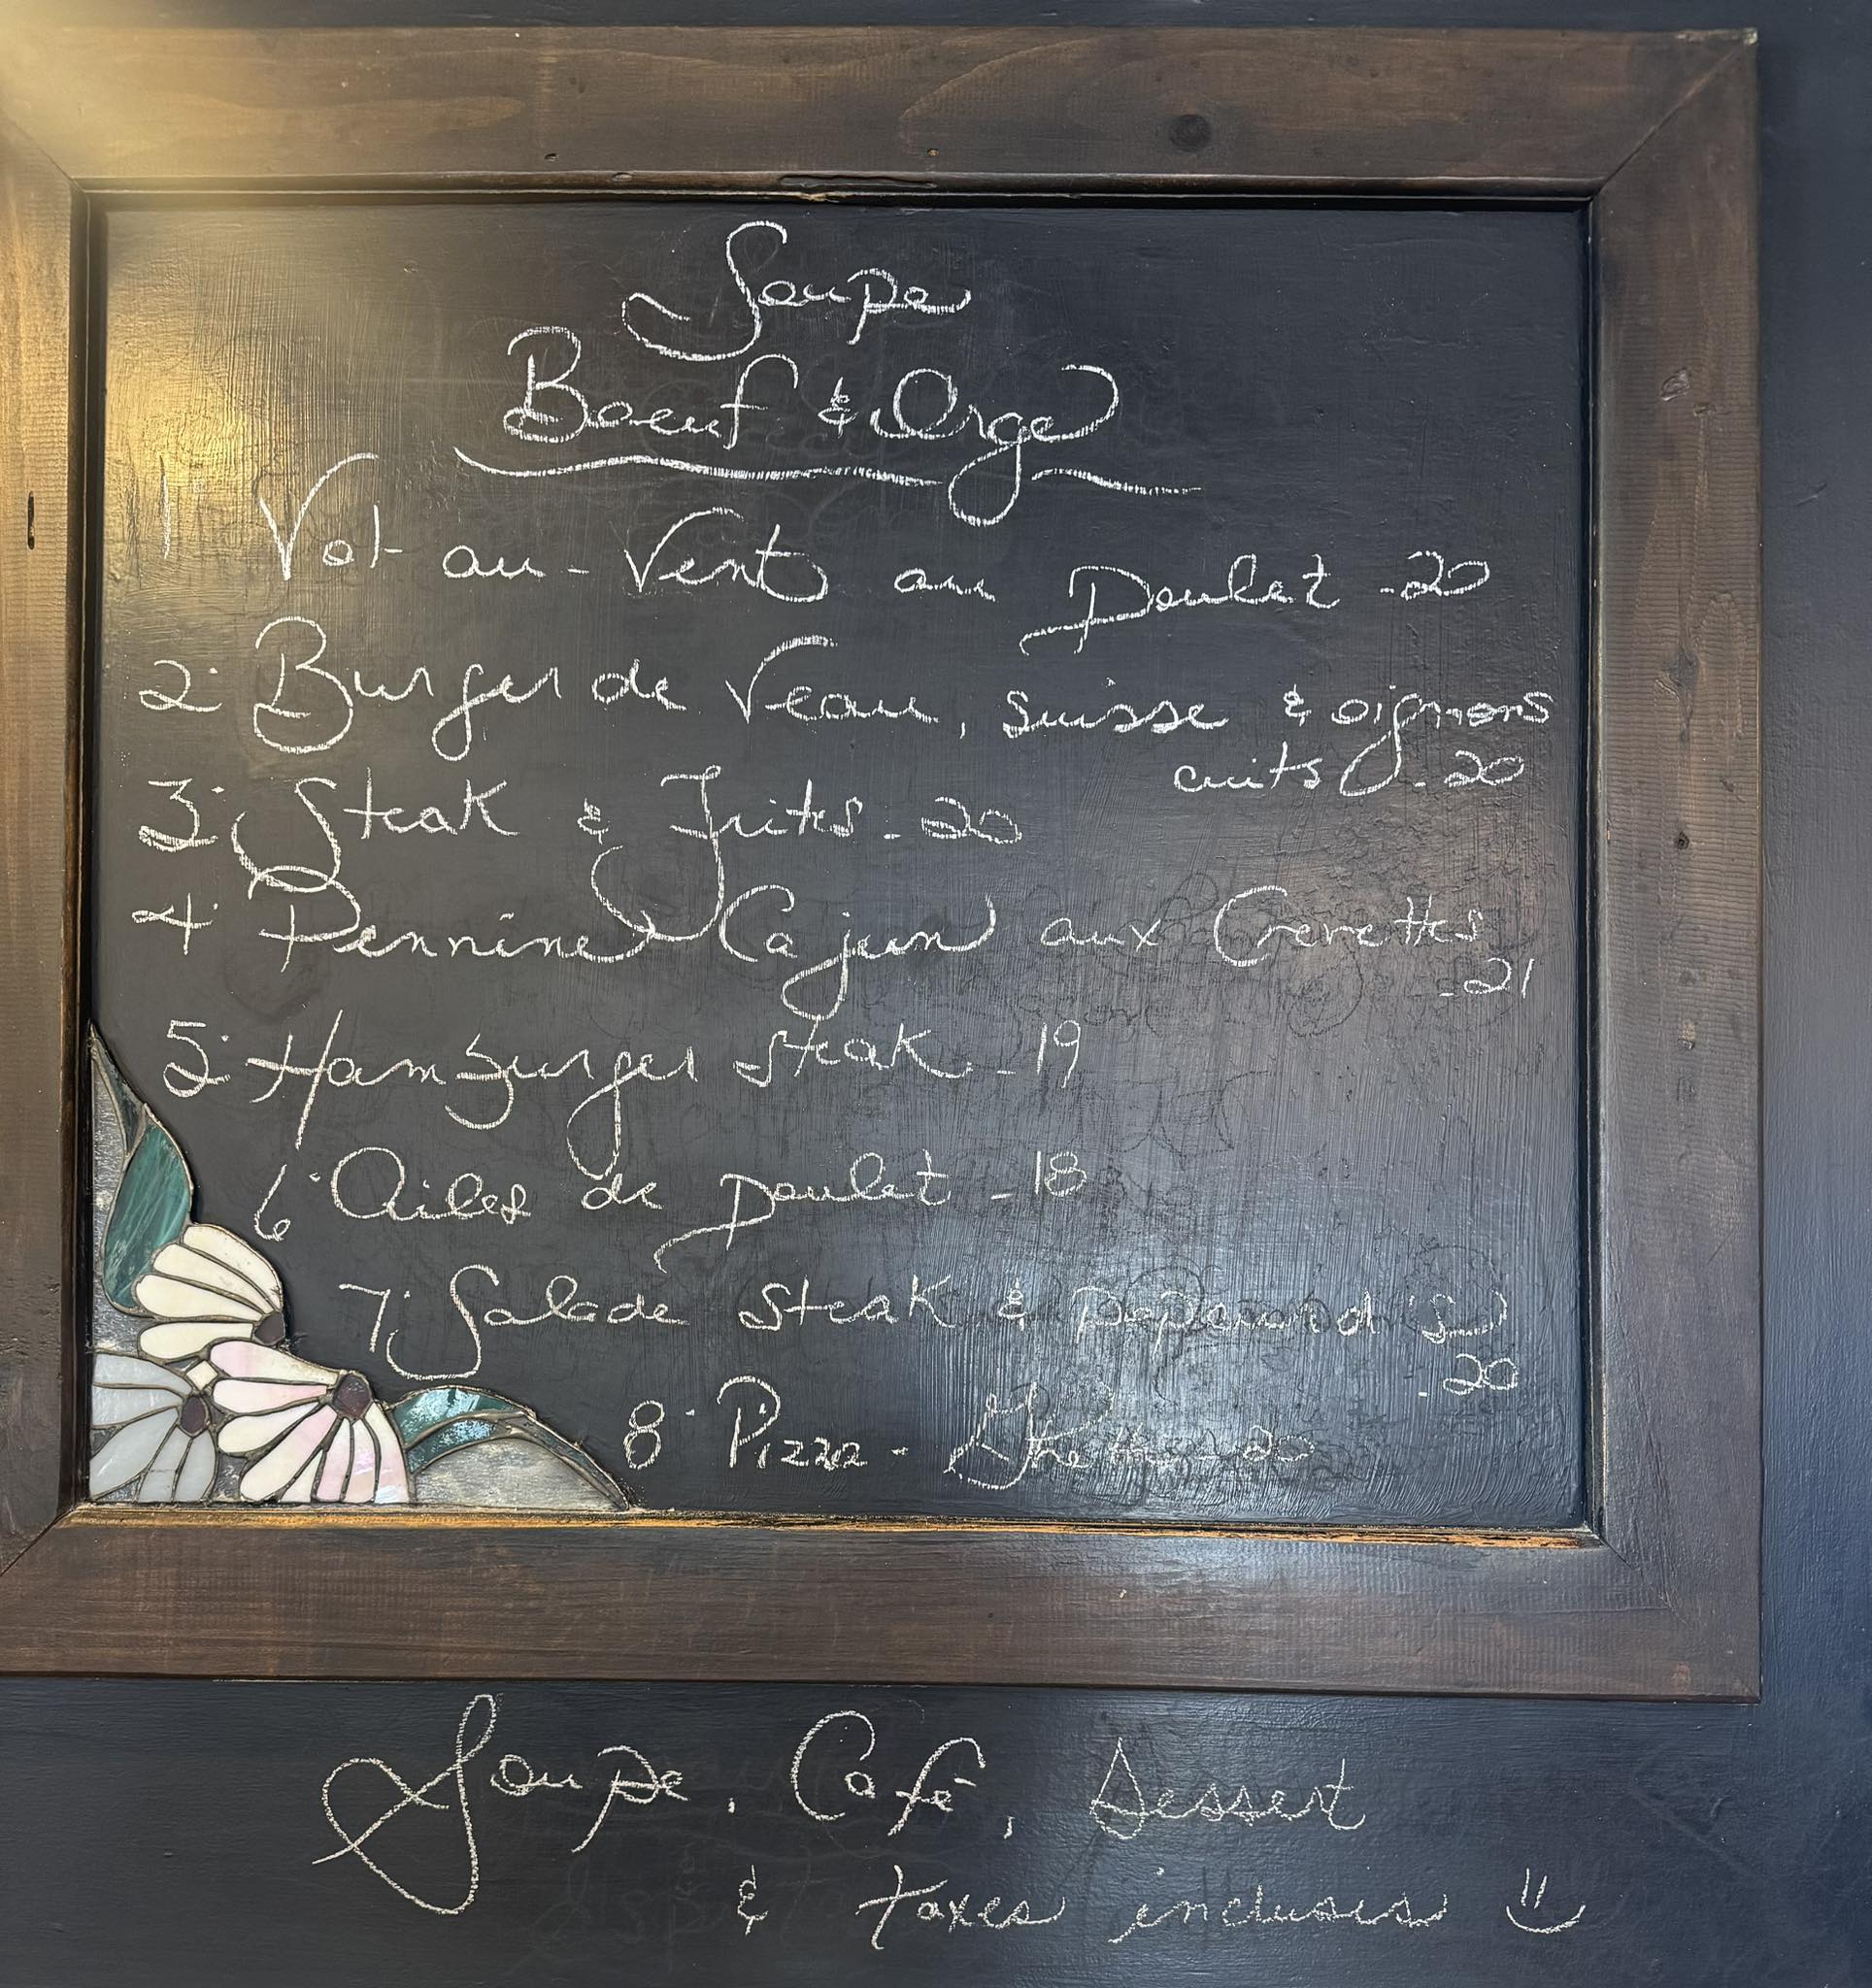 Soupe
Boeuf & Orge
1 Vol-au-Vent au Poulet -20
2· Burger de Veau, suisse & oignons
cuits -20
3· Steak & Frites -20
4· Pennine Cajun aux Crevettes
-21
5· Hamburger steak -19
6· Ailes de poulet -18
7· Salade steak & peperond
-20
8· Pizza - Ghetto -20
Soupe, Café, Dessert
& taxes incluses